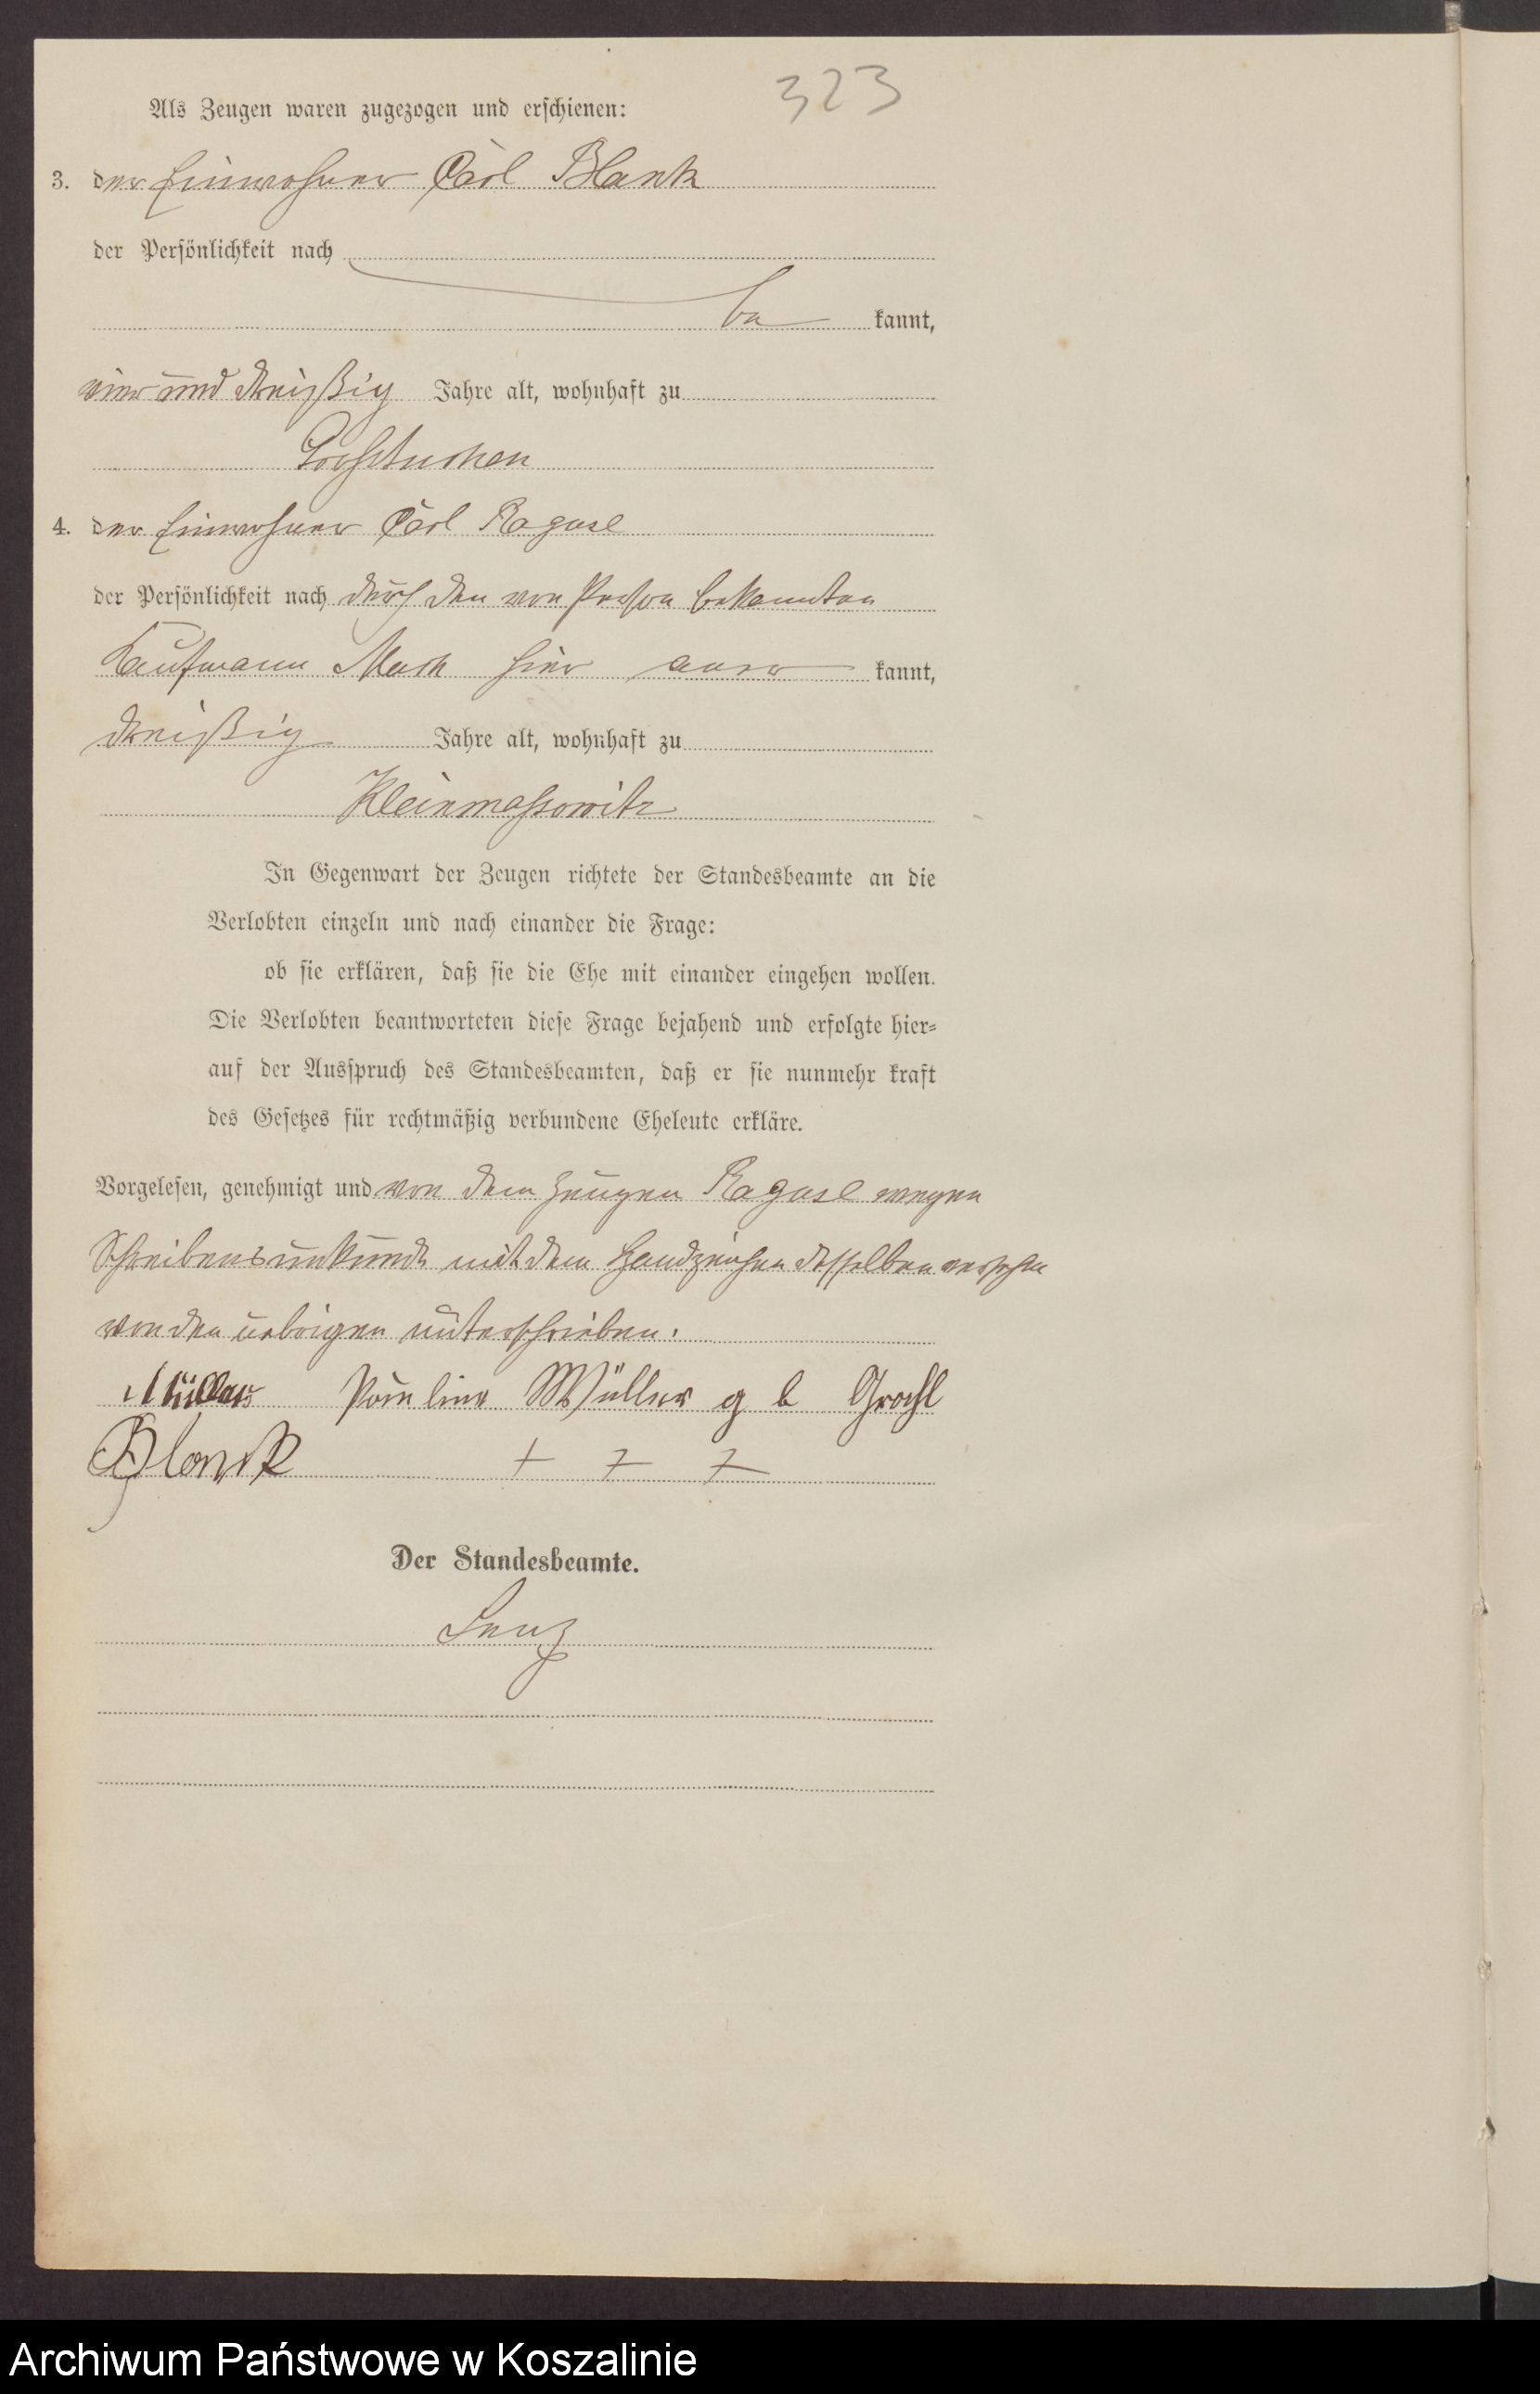 323
Als Zeugen waren zugezogen und erschienen:
3. der Einwohner Carl Blank
der Persönlichkeit nach
be kannt,
vier und dreißig Jahre alt, wohnhaft zu
Großtuchen
4. der Einwohner Carl Ragase
der Persönlichkeit nach durch den von Person bekannten
Kaufmann Mach hier aner kannt,
dreißig Jahre alt, wohnhaft zu
Kleinmassowitz
In Gegenwart der Zeugen richtete der Standesbeamte an die
Verlobten einzeln und nach einander die Frage:
ob sie erklären, daß sie die Ehe mit einander eingehen wollen.
Die Verlobten beantworteten diese Frage bejahend und erfolgte hier=
auf der Ausspruch des Standesbeamten, daß er sie nunmehr kraft
des Gesetzes für rechtmäßig verbundene Eheleute erkläre.
Vorgelesen, genehmigt und von dem Zeugen Ragase wegen
Schreibensunkunde mit dem Handzeichen desselben versehen
von den uebrigen unterschrieben.
Müller Pauline Müller g b Grohl
Blank + + +
Der Standesbeamte.
Lenz
Archiwum Państwowe w Koszalinie